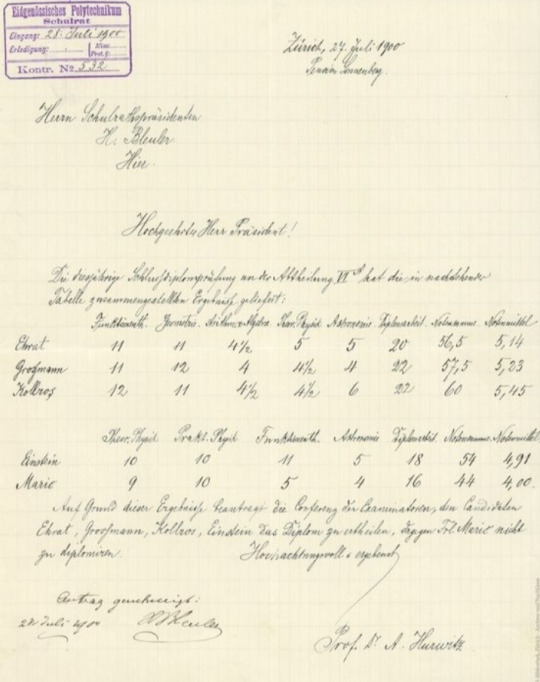 Eidgenössisches Polytechnikum
Schulrat
Eingang: 28. Juli 1900
Erledigung:
Kontr. No 532
Zürich, 27. Juli 1900
Pension Sonnenberg.
Herrn Schulrathspräsidenten
H. Bleuler
Hier.
Hochgeehrter Herr Präsident!
Die diesjährige Schlussdiplomprüfung an der Abtheilung VI A hat die in nachstehender
Tabelle zusammengestellten Ergebnisse geliefert:
Funktionenth. Geometrie. Arithm. u. Algebra Theor. Physik Astronomie Diplomarbeit. Notensumme Notenmittel
Ehrat 11 11 4½ 5 5 20 56,5 5,14
Grossmann 11 12 4 4½ 4 22 57,5 5,23
Kollros 12 11 4½ 4½ 6 22 60 5,45
Theor. Physik Prakt. Physik Funktionenth. Astronomie Diplomarbeit. Notensumme. Notenmittel
Einstein 10 10 11 5 18 54 4,91
Maric 9 10 5 4 16 44 4,00.
Auf Grund dieser Ergebnisse beantragt die Conferenz der Examinatoren, den Candidaten
Ehrat, Grossmann, Kollros, Einstein das Diplom zu ertheilen, dagegen Frl. Maric nicht
zu diplomiren. Hochachtungsvoll u ergebenst
Antrag genehmigt:
Juli 1900 H Bleuler
Prof. Dr. A. Hurwitz